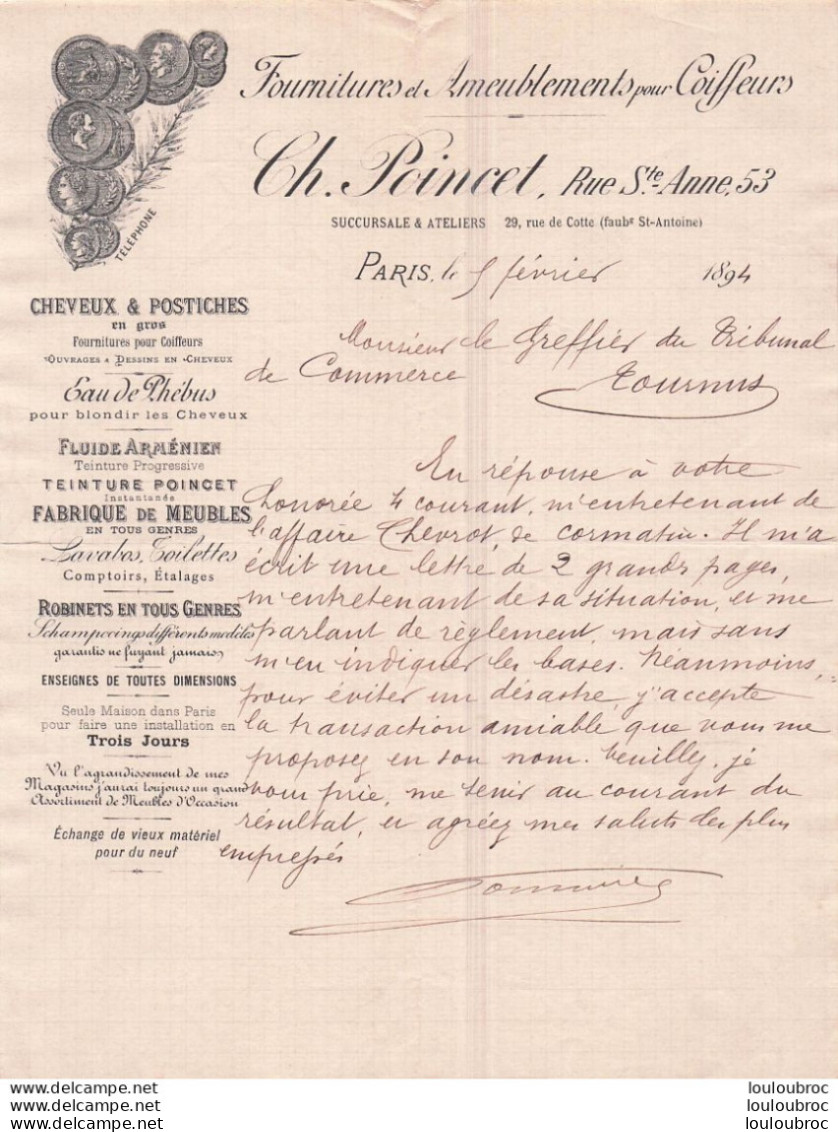 Fournitures et Ameublements pour Coiffeurs
Ch. Poincet, Rue Ste-Anne, 53
SUCCURSALE & ATELIERS 29, rue de Cotte (faubg St-Antoine)
TÉLÉPHONE
PARIS, le 5 février 1894
CHEVEUX & POSTICHES
en gros
Fournitures pour Coiffeurs
OUVRAGES & DESSINS EN CHEVEUX
Eau de Phébus
pour blondir les Cheveux
FLUIDE ARMÉNIEN
Teinture Progressive
TEINTURE POINCET
Instantanée
FABRIQUE DE MEUBLES
EN TOUS GENRES
Lavabos, Toilettes
Comptoirs, Étalages
ROBINETS EN TOUS GENRES
Schampooings différents modèles
garantis ne fuyant jamais
ENSEIGNES DE TOUTES DIMENSIONS
Seule Maison dans Paris
pour faire une installation en
Trois Jours
Vu l'agrandissement de mes
Magasins j'aurai toujours un grand
Assortiment de Meubles d'Occasion
Échange de vieux matériel
pour du neuf
Monsieur le Greffier du Tribunal
de Commerce
Tournus
En réponse à votre
honorée 4 courant, m'entretenant de
l'affaire Chevrot, de cormatin. Il m'a
écrit une lettre de 2 grandes pages,
m'entretenant de sa situation, et me
parlant de règlement, mais sans
m'en indiquer les bases. Néanmoins,
pour éviter un désastre, j'accepte
la transaction amiable que vous me
proposez en son nom. Veuillez, je
vous prie, me tenir au courant du
résultat, et agréez mes saluts les plus
empressés
delcampe.net
louloubroc
louloubroc
louloubroc